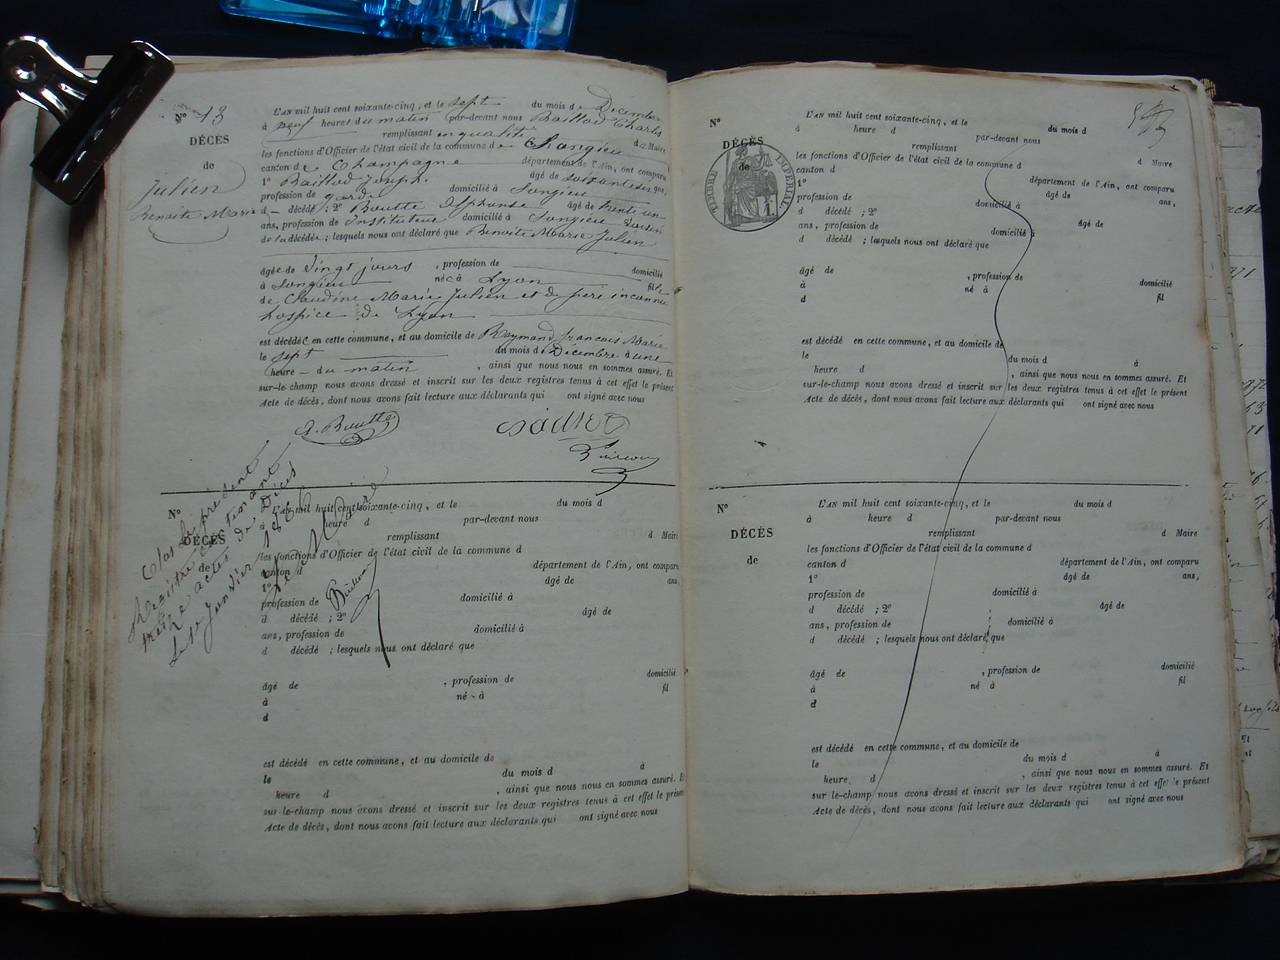 N° 13
DÉCÈS
de
Julien
Benoite Marie
L'AN mil huit cent soixante-cinq, et le sept du mois de Décembre
à neuf heures du matin par-devant nous Baillod Charles
remplissant en qualité de Maire
les fonctions d'Officier de l'état civil de la commune de Songieu
canton de Champagne département de l'Ain, ont comparu
1° Baillod Joseph âgé de soixante six ans,
profession de garde domicilié à Songieu
d décédé ; 2° Boutte Alphonse âgé de trente un
ans, profession de Instituteur domicilié à Songieu
de la décédée ; lesquels nous ont déclaré que Benoite Marie Julien
âgée de vingt jours , profession de domicilié
à Songieu née à Lyon fille
de Claudine Marie Julien et de père inconnu
hospice de Lyon
est décédée en cette commune, et au domicile de Reymond françois Marie
le sept du mois de Décembre à une
heure du matin , ainsi que nous nous en sommes assuré. Et
sur-le-champ nous avons dressé et inscrit sur les deux registres tenus à cet effet le présent
Acte de décès, dont nous avons fait lecture aux déclarants qui ont signé avec nous
A. Boutte
Clos le présent
Registre contenant
treize actes de Décès
le 1er Janvier 1866
Le Maire
N°
DÉCÈS
de
L'AN mil huit cent soixante-cinq, et le du mois d
à heure d par-devant nous
remplissant d Maire
les fonctions d'Officier de l'état civil de la commune d
canton d département de l'Ain, ont comparu
1° âgé de ans,
profession de domicilié à
d décédé ; 2° âgé de
ans, profession de domicilié à
d décédé ; lesquels nous ont déclaré que
âgé de , profession de domicilié
à né à fil
d
est décédé en cette commune, et au domicile de
le du mois d à
heure d , ainsi que nous nous en sommes assuré. Et
sur-le-champ nous avons dressé et inscrit sur les deux registres tenus à cet effet le présent
Acte de décès, dont nous avons fait lecture aux déclarants qui ont signé avec nous
N°
DÉCÈS
de
TIMBRE IMPÉRIAL
L'AN mil huit cent soixante-cinq, et le du mois d
à heure d par-devant nous
remplissant d Maire
les fonctions d'Officier de l'état civil de la commune d
canton d département de l'Ain, ont comparu
1° âgé de ans,
profession de domicilié à
d décédé ; 2° âgé de
ans, profession de domicilié à
d décédé ; lesquels nous ont déclaré que
âgé de , profession de domicilié
à né à fil
d
est décédé en cette commune, et au domicile de
le du mois d à
heure d , ainsi que nous nous en sommes assuré. Et
sur-le-champ nous avons dressé et inscrit sur les deux registres tenus à cet effet le présent
Acte de décès, dont nous avons fait lecture aux déclarants qui ont signé avec nous
N°
DÉCÈS
de
L'AN mil huit cent soixante-cinq, et le du mois d
à heure d par-devant nous
remplissant d Maire
les fonctions d'Officier de l'état civil de la commune d
canton d département de l'Ain, ont comparu
1° âgé de ans,
profession de domicilié à
d décédé ; 2° âgé de
ans, profession de domicilié à
d décédé ; lesquels nous ont déclaré que
âgé de , profession de domicilié
à né à fil
d
est décédé en cette commune, et au domicile de
le du mois d à
heure d , ainsi que nous nous en sommes assuré. Et
sur-le-champ nous avons dressé et inscrit sur les deux registres tenus à cet effet le présent
Acte de décès, dont nous avons fait lecture aux déclarants qui ont signé avec nous